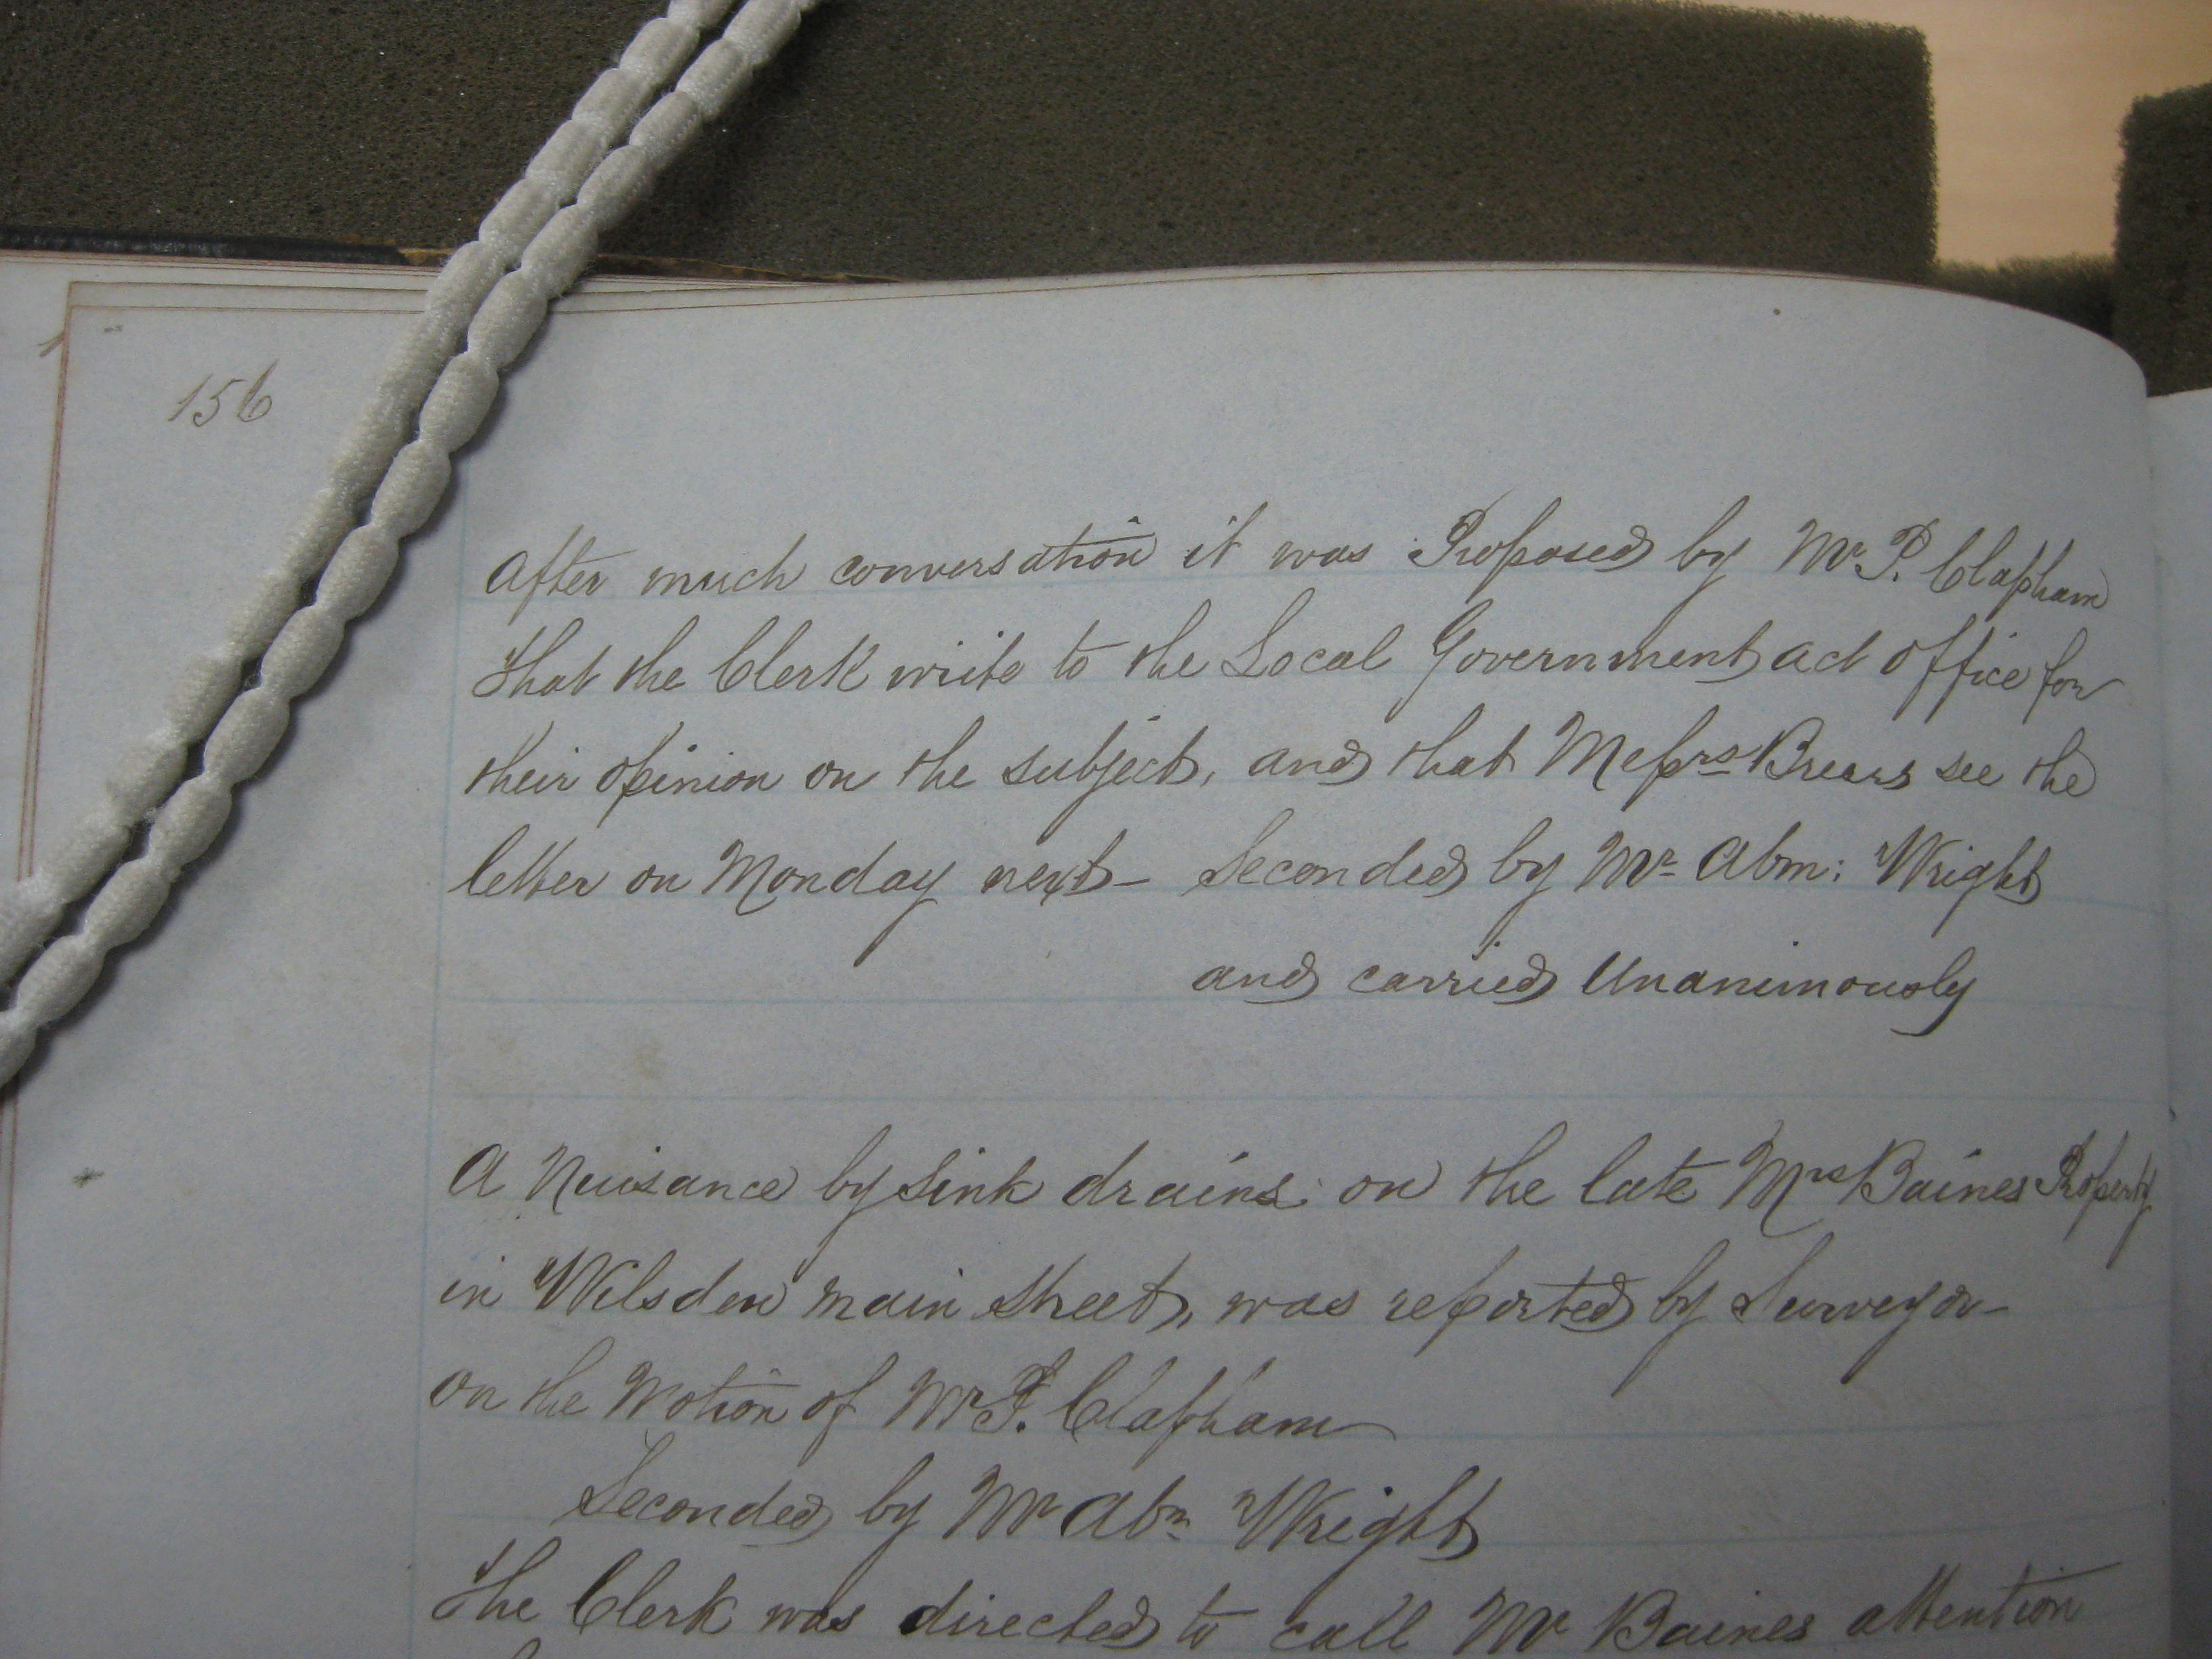 156
After much conversation it was Proposed by Mr P. Clapham
that the Clerk write to the Local Government act office for
their opinion on the subject, and that Messrs Brears see the
letter on Monday next – Seconded by Mr Abm: Wright
and carried Unanimously
A Nuisance by Sink drains on the late Mrs Baines Property
in Wilsden main Street, was reported by Surveyor –
on the Motion of Mr P. Clapham
Seconded by Mr Abm Wright
The Clerk was directed to call Mr Baines attention